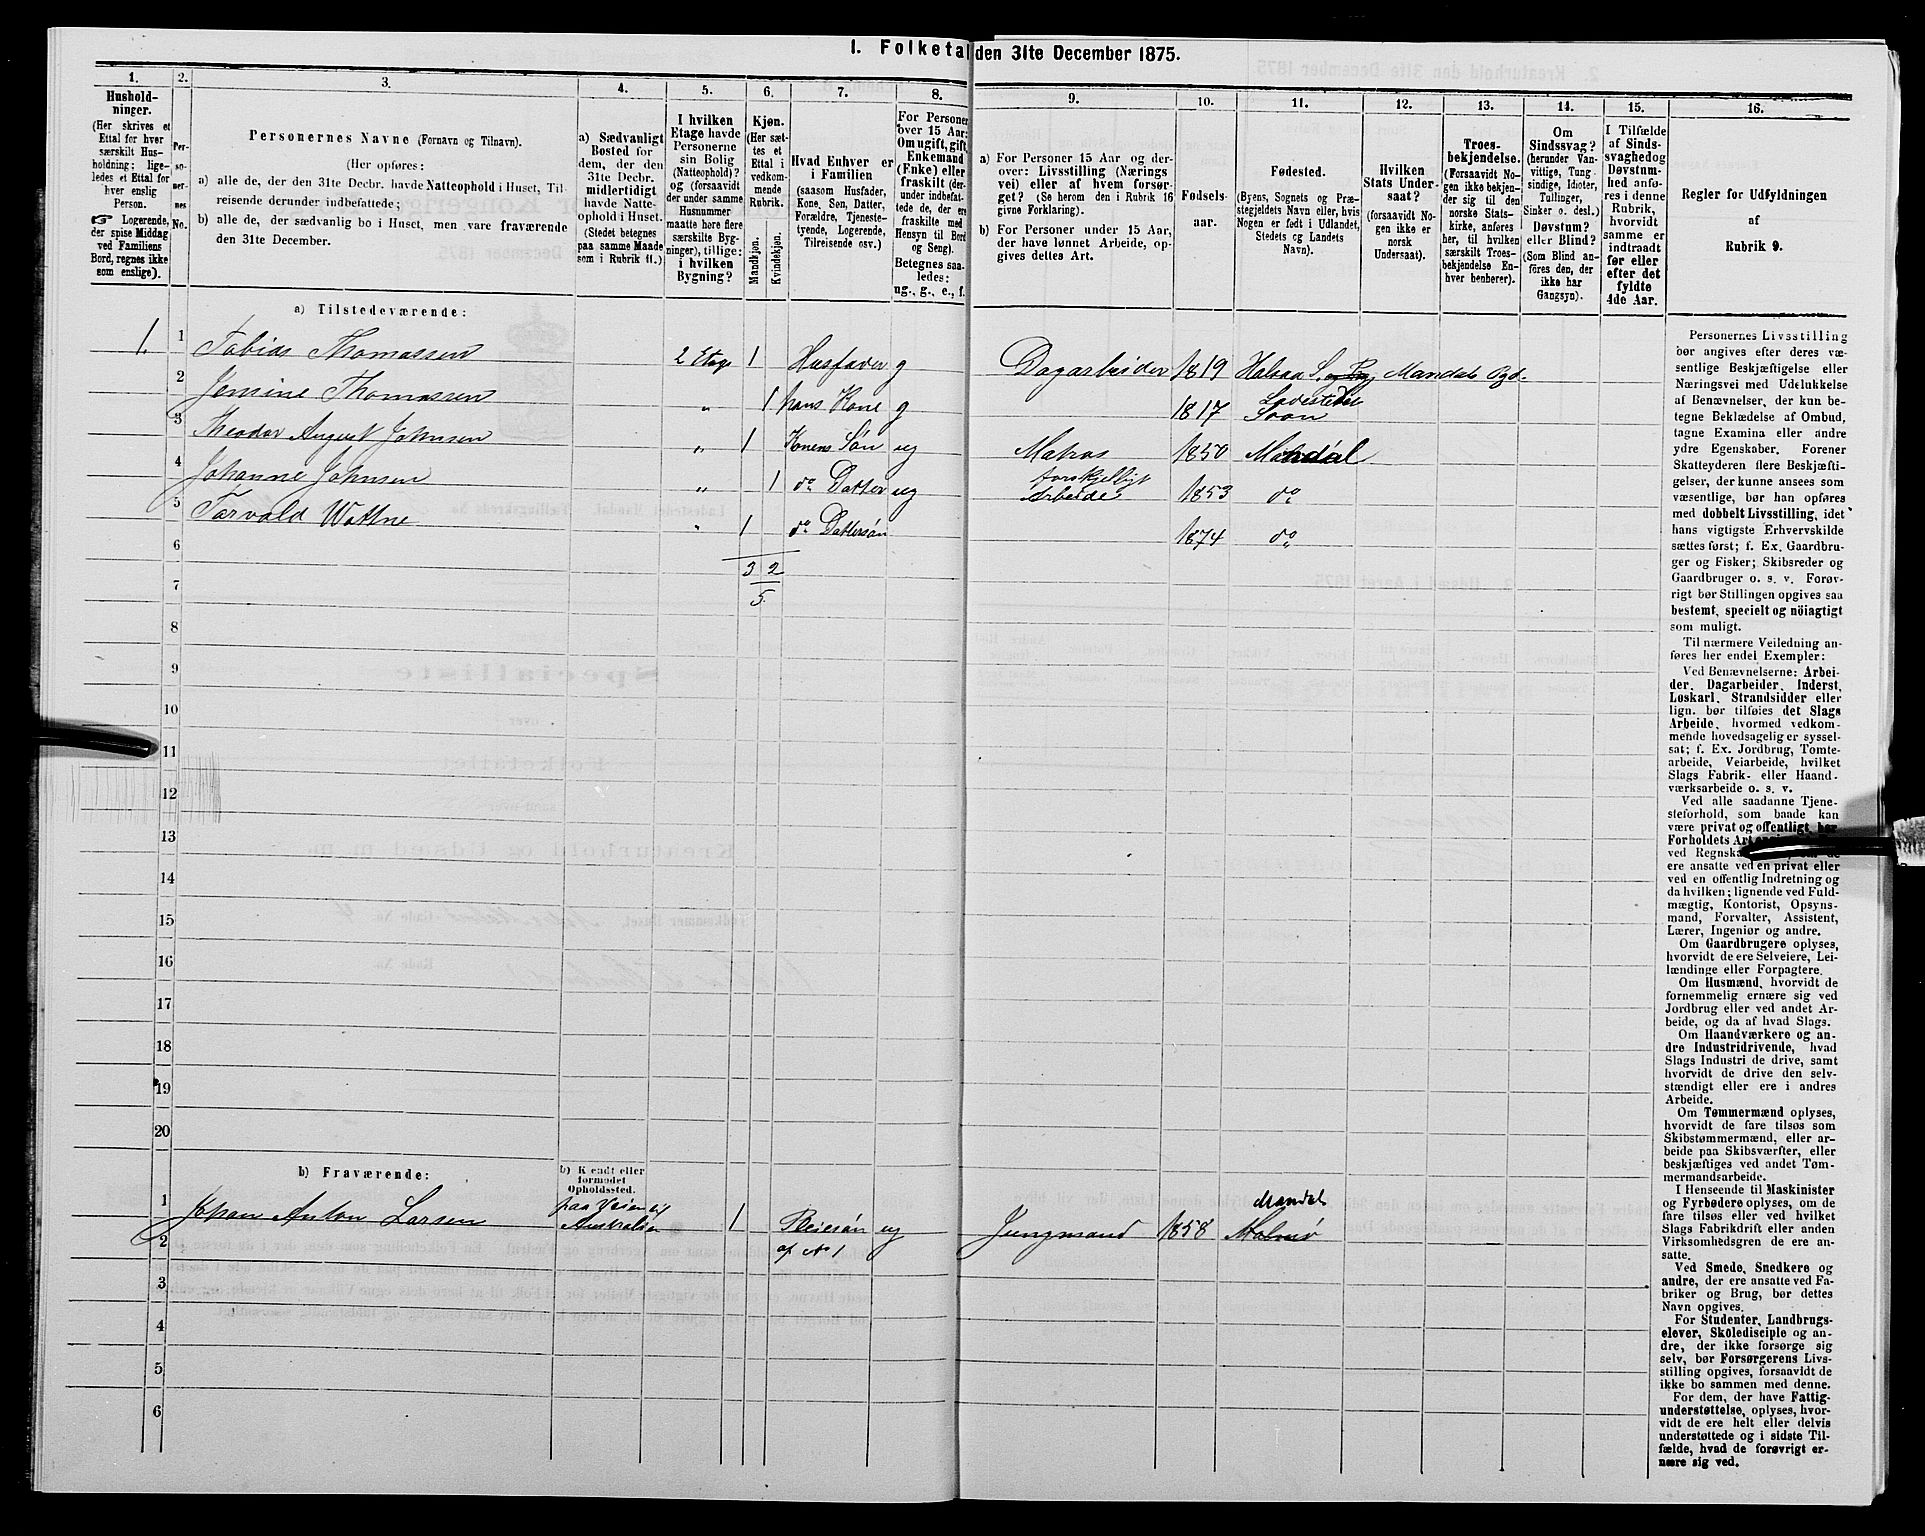 I. Folketal den 31te December 1875.
1.
2.
3.
4.
5.
6.
7.
8.
9.
10.
11.
12.
13.
14.
15.
16.
Hushold-
ninger.
(Her skrives et
Ettal for hver
særskilt Hus-
holdning; lige-
ledes et Ettal for
hver enslig
Person.
☞ Logerende,
der spise Middag
ved Familiens
Bord, regnes ikke
som enslige).
Per-
so-
ner-
nes
No.
Personernes Navne (Fornavn og Tilnavn).
(Her opføres:
a) alle de, der den 31te Decbr. havde Natteophold i Huset, Til-
reisende derunder indbefattede;
b) alle de, der sædvanlig bo i Huset, men vare fraværende
den 31te December.
a) Sædvanligt
Bosted for
dem, der den
31te Decbr.
midlertidigt
havde Natte-
ophold i Huset.
(Stedet betegnes
paa samme Maade
som i Rubrik 11.)
I hvilken
Etage havde
Personerne
sin Bolig
(Natteophold)?
og (forsaavidt
der under samme
Husnummer
maatte høre flere
særskilte Byg-
ninger), tillige:
i hvilken
Bygning?
Kjøn.
(Her sæt-
tes et
Ettal i
vedkom-
mende
Rubrik.
Mandkjøn.
Kvindekjøn.
Hvad Enhver er
i Familien
(saasom Husfader,
Kone, Søn, Datter,
Forældre, Tjeneste-
tyende, Logerende,
Tilreisende osv.)
For Personer
over 15 Aar:
Om ugift, gift,
Enkemand
(Enke) eller
fraskilt (der-
under indbefat-
tede de, der ere
fraskilte med
Hensyn til Bord
og Seng).
Betegnes saa-
ledes:
ug., g., e., f.
a) For Personer 15 Aar og der-
over: Livsstilling (Nærings
vei) eller af hvem forsør-
get? (Se herom den i Rubrik 16
givne Forklaring).
b) For Personer under 15 Aar,
der have lønnet Arbeide, op-
gives dettes Art.
Fødsels-
aar.
Fødested.
(Byens, Sognets og Præ-
stegjeldets Navn eller, hvis
Nogen er født i Udlandet,
Stedets og Landets
Navn).
Hvilken
Stats Under-
saat?
(forsaavidt No-
gen ikke er
norsk
Undersaat).
Troes-
bekjendelse.
(Forsaavidt No-
gen ikke bekjen-
der sig til den
norske Stats-
kirke, anføres
her, til hvilken
særskilt Troes-
bekjendelse En-
hver henhører).
Om
Sindssvag?
(herunder Van-
vittige, Tung-
sindige, Idioter,
Tullinger,
Sinker o. desl.)
Døvstum?
eller Blind?
(Som Blind an-
føres den, der
ikke har
Gangsyn).
I Tilfælde
af Sinds-
svaghedog
Døvstum-
hed anfø-
res i denne
Rubrik,
hvorvidt
samme er
indtraadt
før eller
efter det
fyldte
4de Aar.
Regler for Udfyldningen
af
Rubrik 9.
a) Tilstedeværende:
1. 1 Tobias Thomassen 2 Etage 1 Husfader g Dagarbeider 1819 Halsaa S. Mandals Pgd.
2 Jensine Thomassen " 1 hans Kone g 1817 Ladestedet Soon
3 Theodor August Johnsen " 1 Konens Søn ug Matros 1850 Mandal
4 Johanne Johnsen " 1 do Datter ug forskjelligt Arbeide 1853 do
5 Torvald Wattne " 1 do Dattersøn 1874 do
6
3 2
7
5.
8
9
10
11
12
13
14
15
16
17
18
19
20
b) Fraværende:
b) Kjendt eller
formodet
Opholdssted.
1 Johan Anton Larsen paa Veien til Australien 1 Pleiesøn af No 1 ug Jungmand 1858 Mandal
2
3
4
5
6
Personernes Livsstilling
bør angives efter deres væ-
sentlige Beskjæftigelse eller
Næringsvei med Udelukkelse
af Benævnelser, der kun be-
tegne Beklædelse af Ombud,
tagne Examina eller andre
ydre Egenskaber. Forener
Skatteyderen flere Beskjæfti-
gelser, der kunne ansees som
væsentlige, bør han opføres
med dobbelt Livsstilling, idet
hans vigtigste Erhvervskilde
sættes først; f. Ex. Gaardbru-
ger og Fisker; Skibsreder og
Gaardbruger o. s. v. Forøv-
rigt bør Stillingen opgives saa
bestemt, specielt og nöiagtigt
som muligt.
Til nærmere Veiledning an-
føres her endel Exempler:
Ved Benævnelserne: Arbei-
der, Dagarbeider, Inderst,
Løskarl, Strandsidder eller
lign. bør tilføies det Slags
Arbeide, hvormed vedkom-
mende hovedsagelig er syssel-
sat; f. Ex. Jordbrug, Tomte-
arbeide, Veiarbeide, hvilket
Slags Fabrik- eller Haand-
værksarbeide o. s. v.
Ved alle saadanne Tjene-
steforhold, som baade kan
være privat og offentligt, bør
Forholdets Art
ved
ere ansatte ved en privat eller
ved en offentlig Indretning og
da hvilken; lignende ved Fuld-
mægtig, Kontorist, Opsyns-
mand, Forvalter, Assistent,
Lærer, Ingeniør og andre.
Om Gaardbrugere oplyses,
hvorvidt de ere Selveiere, Lei-
lændinge eller Forpagtere.
Om Husmænd, hvorvidt de
fornemmelig ernære sig ved
Jordbrug eller ved andet Ar-
beide, og da af hvad Slags.
Om Haandværkere og an-
dre Industridrivende, hvad
Slags Industri de drive, samt
hvorvidt de drive den selv-
stændigt eller ere i andres
Arbeide.
Om Tømmermænd oplyses,
hvorvidt de fare tilsøs som
Skibstømmermænd, eller ar-
beide paa Skibsværfter, eller
beskjæftiges ved andet Töm-
mermandsarbeide.
I Henseende til Maskinister
og Fyrbødere oplyses, om de
fare tilsøs eller ved hvilket
Slags Fabrikdrift eller anden
Virksomhedsgren de ere an-
satte.
Ved Smede, Snedkere og
andre, der ere ansatte ved Fa-
briker og Brug, bør dettes
Navn opgives.
For Studenter, Landbrugs-
elever, Skoledisciple og an-
dre, der ikke forsørge sig
selv, bør Forsørgerens Livs-
stilling opgives, forsaavidt de
ikke bo sammen med denne.
For dem, der have Fattig-
understøttelse, oplyses, hvor-
vidt de ere helt eller delvis
understøttede og i sidste Til-
fælde, hvad de forøvrigt er-
nære sig ved.